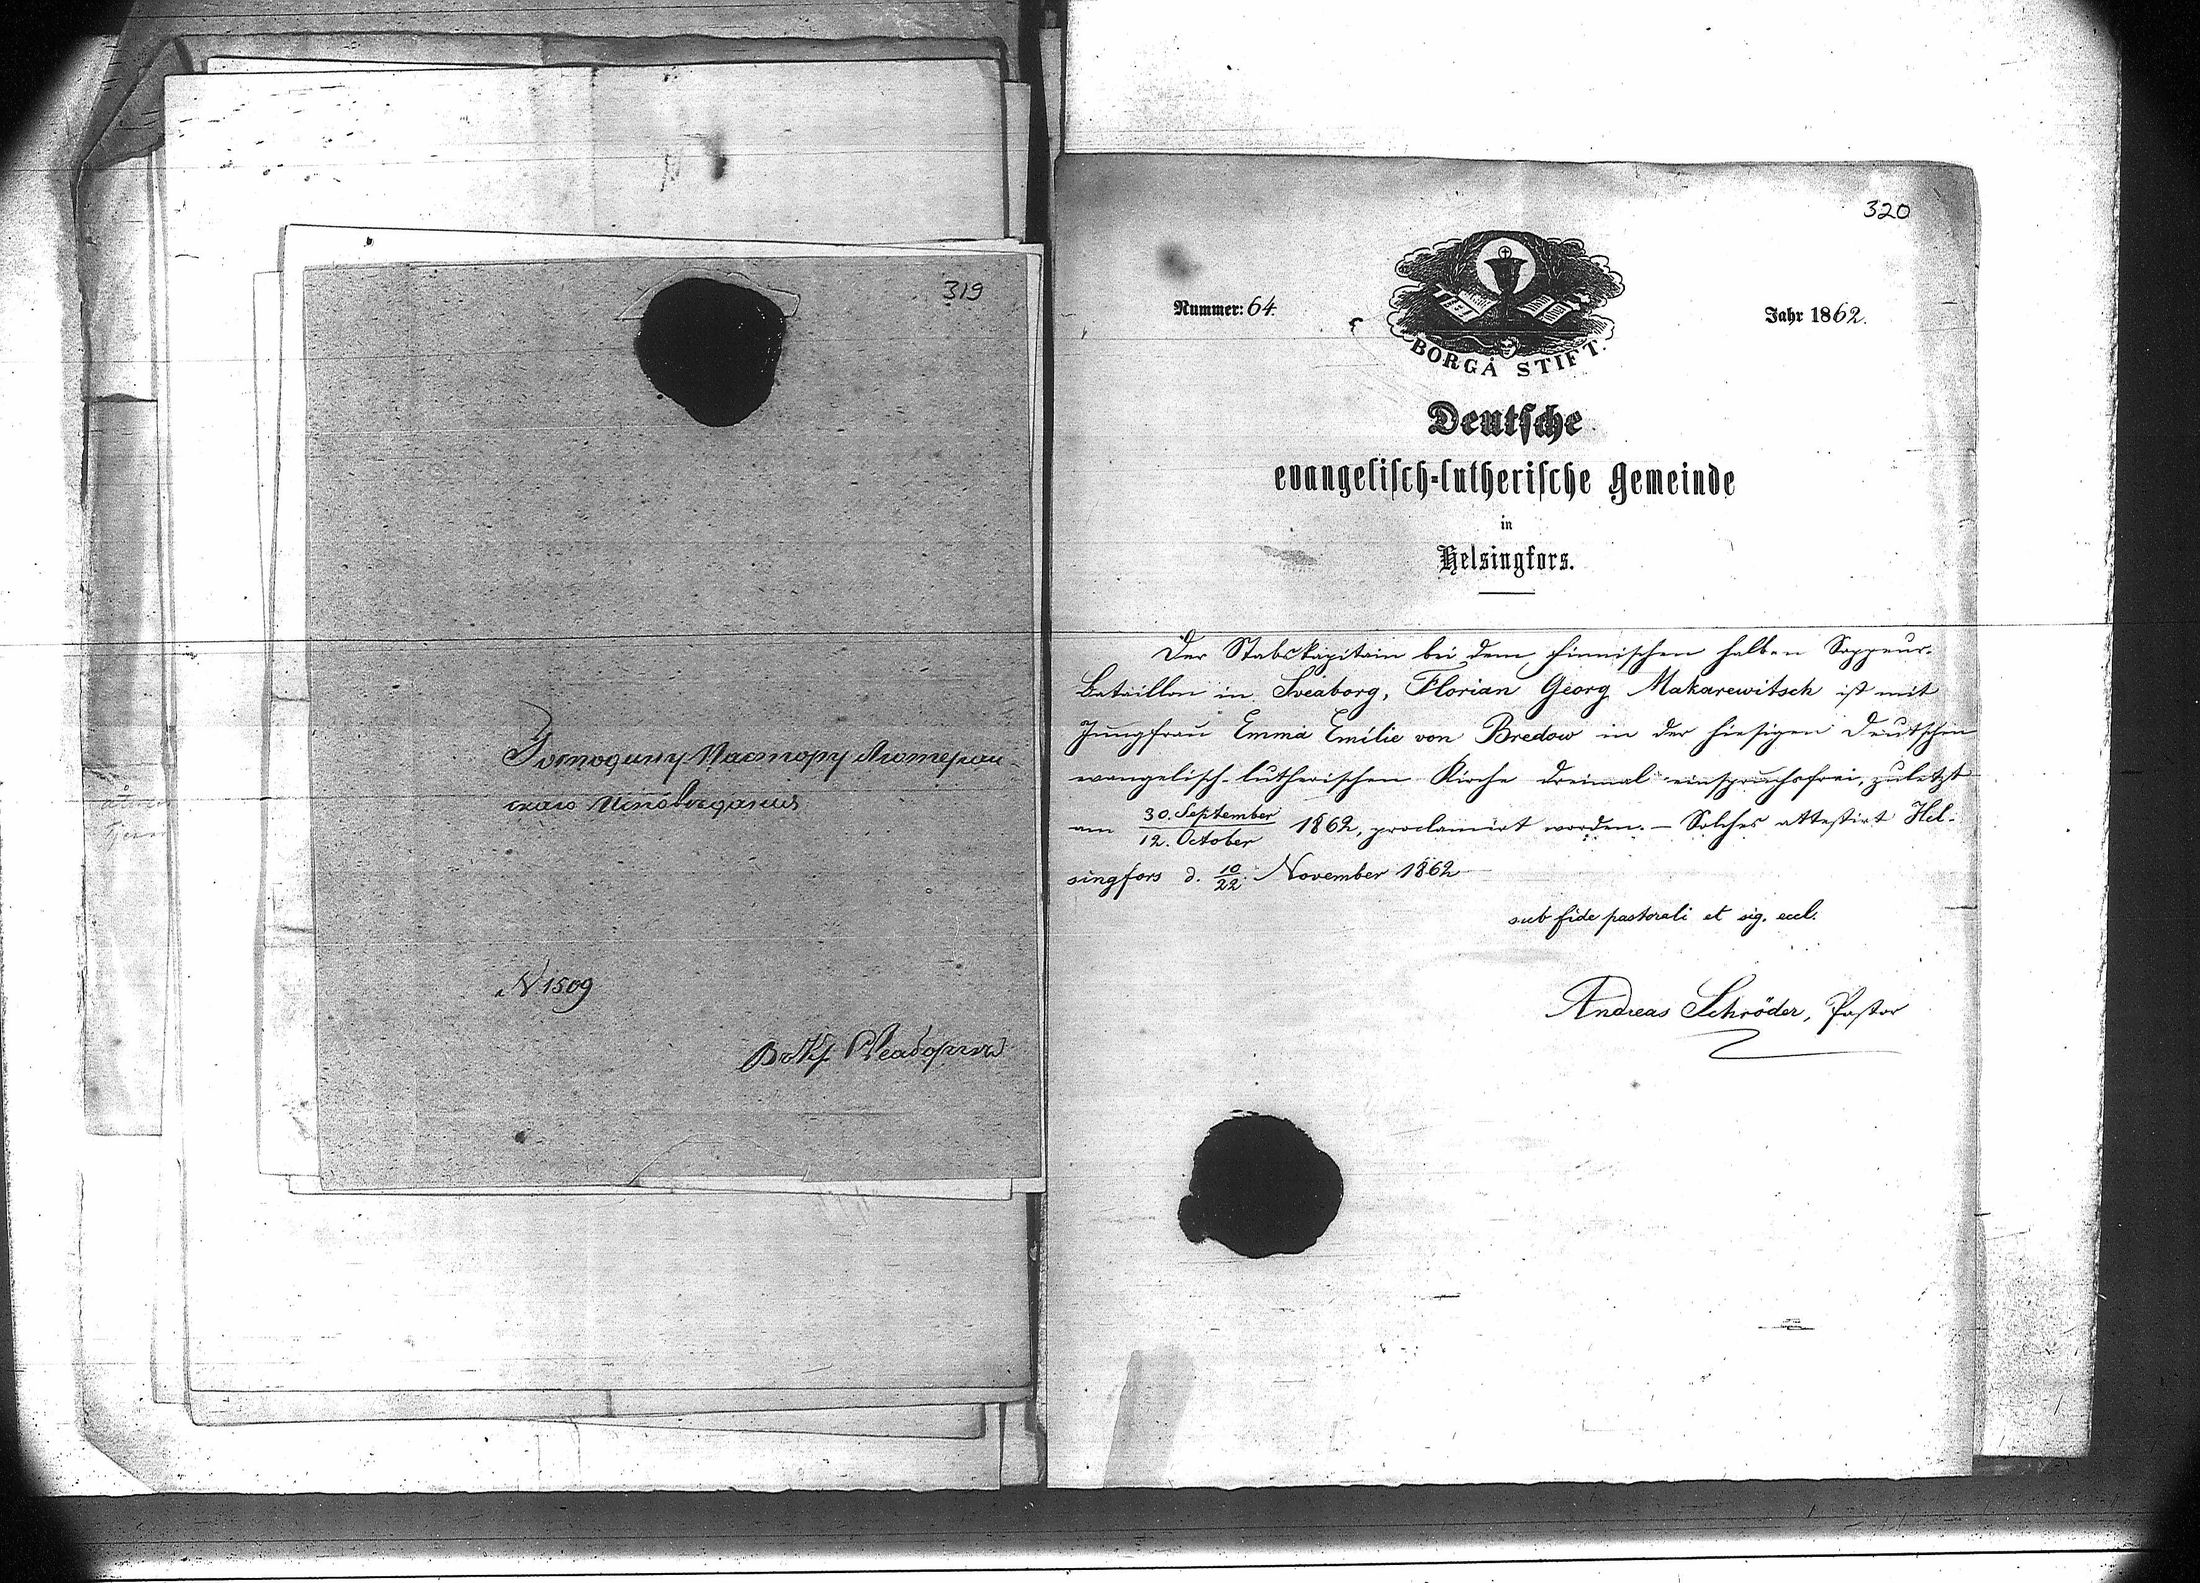 319
Господину Пастору Лютеран-
скаго Исповѣданія
№ 1509
Въ Кр. Свеаборгѣ
320
Nummer: 64.
Jahr 1862.
BORGÅ STIFT.
Deutsche
evangelisch-lutherische Gemeinde
in
Helsingfors.
Der Stabskapitain bei dem finnischen halben Sappeur-
bataillon in Sveaborg, Florian Georg Makarewitsch ist mit
Jungfrau Emma Emilie von Bredow in der hiesigen Deutschen
evangelisch-lutherischen Kirche dreimal einspruchsfrei, zuletzt
am 30. September / 12. October 1862, proclamirt worden. – Solches attestirt Hel-
singfors d. 10/22. November 1862
sub fide pastorali et sig. eccl.
Andreas Schröder, Pastor